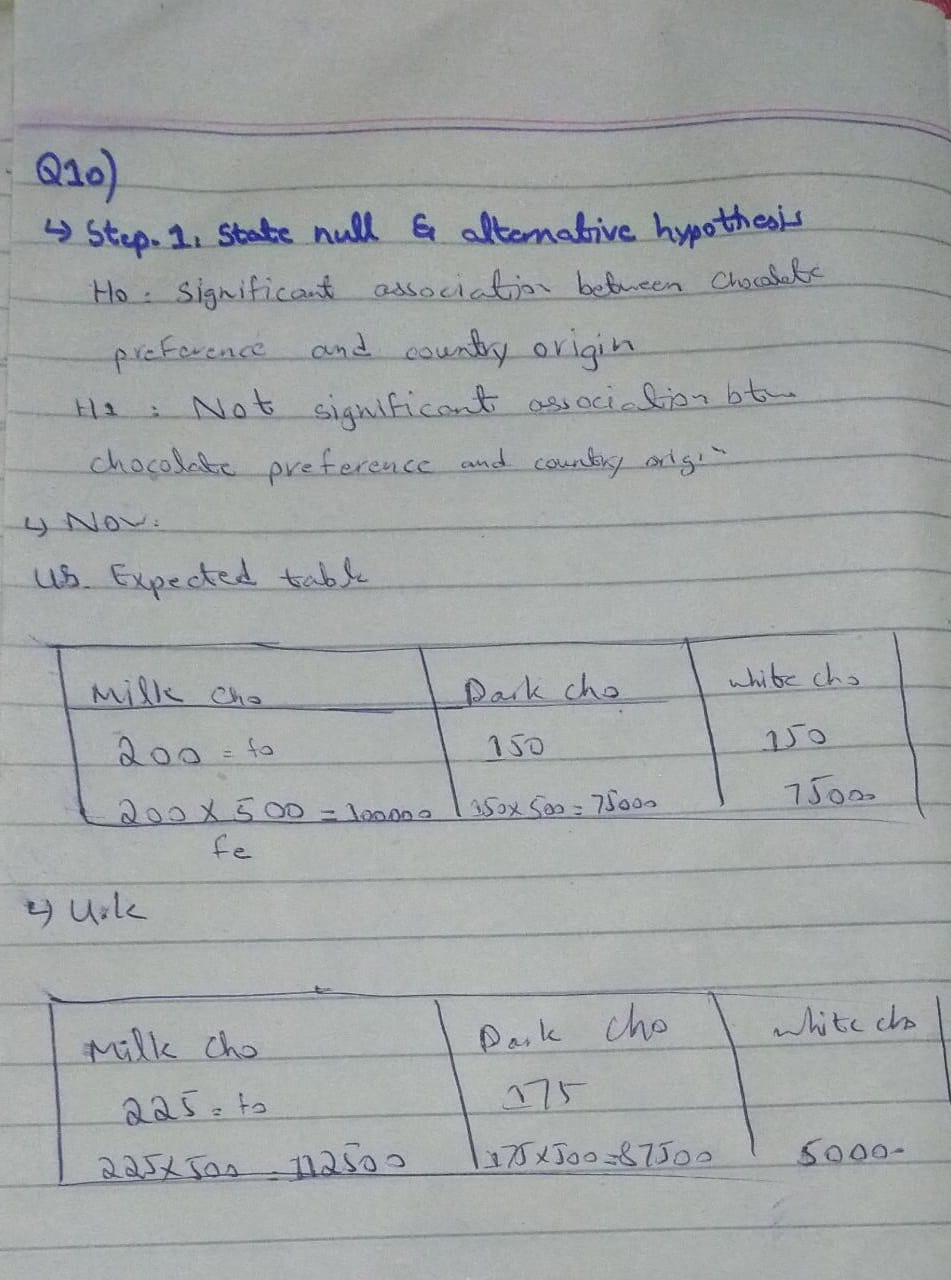 Q10)
↳ Step. 1. State null & alternative hypothesis
Ho : Significant association between Chocolate
preference and country origin
H1 : Not significant association btw
chocolate preference and country origin
↳ Now:
US. Expected table
Milk Cho Dark cho white cho
200 = fo 150 150
200 X 500 = 100000 150x500 = 75000 75000
fe
↳ U.k
Milk Cho Dark Cho white cho
225 = fo 175
225X500 = 112500 175x500=87500 5000-